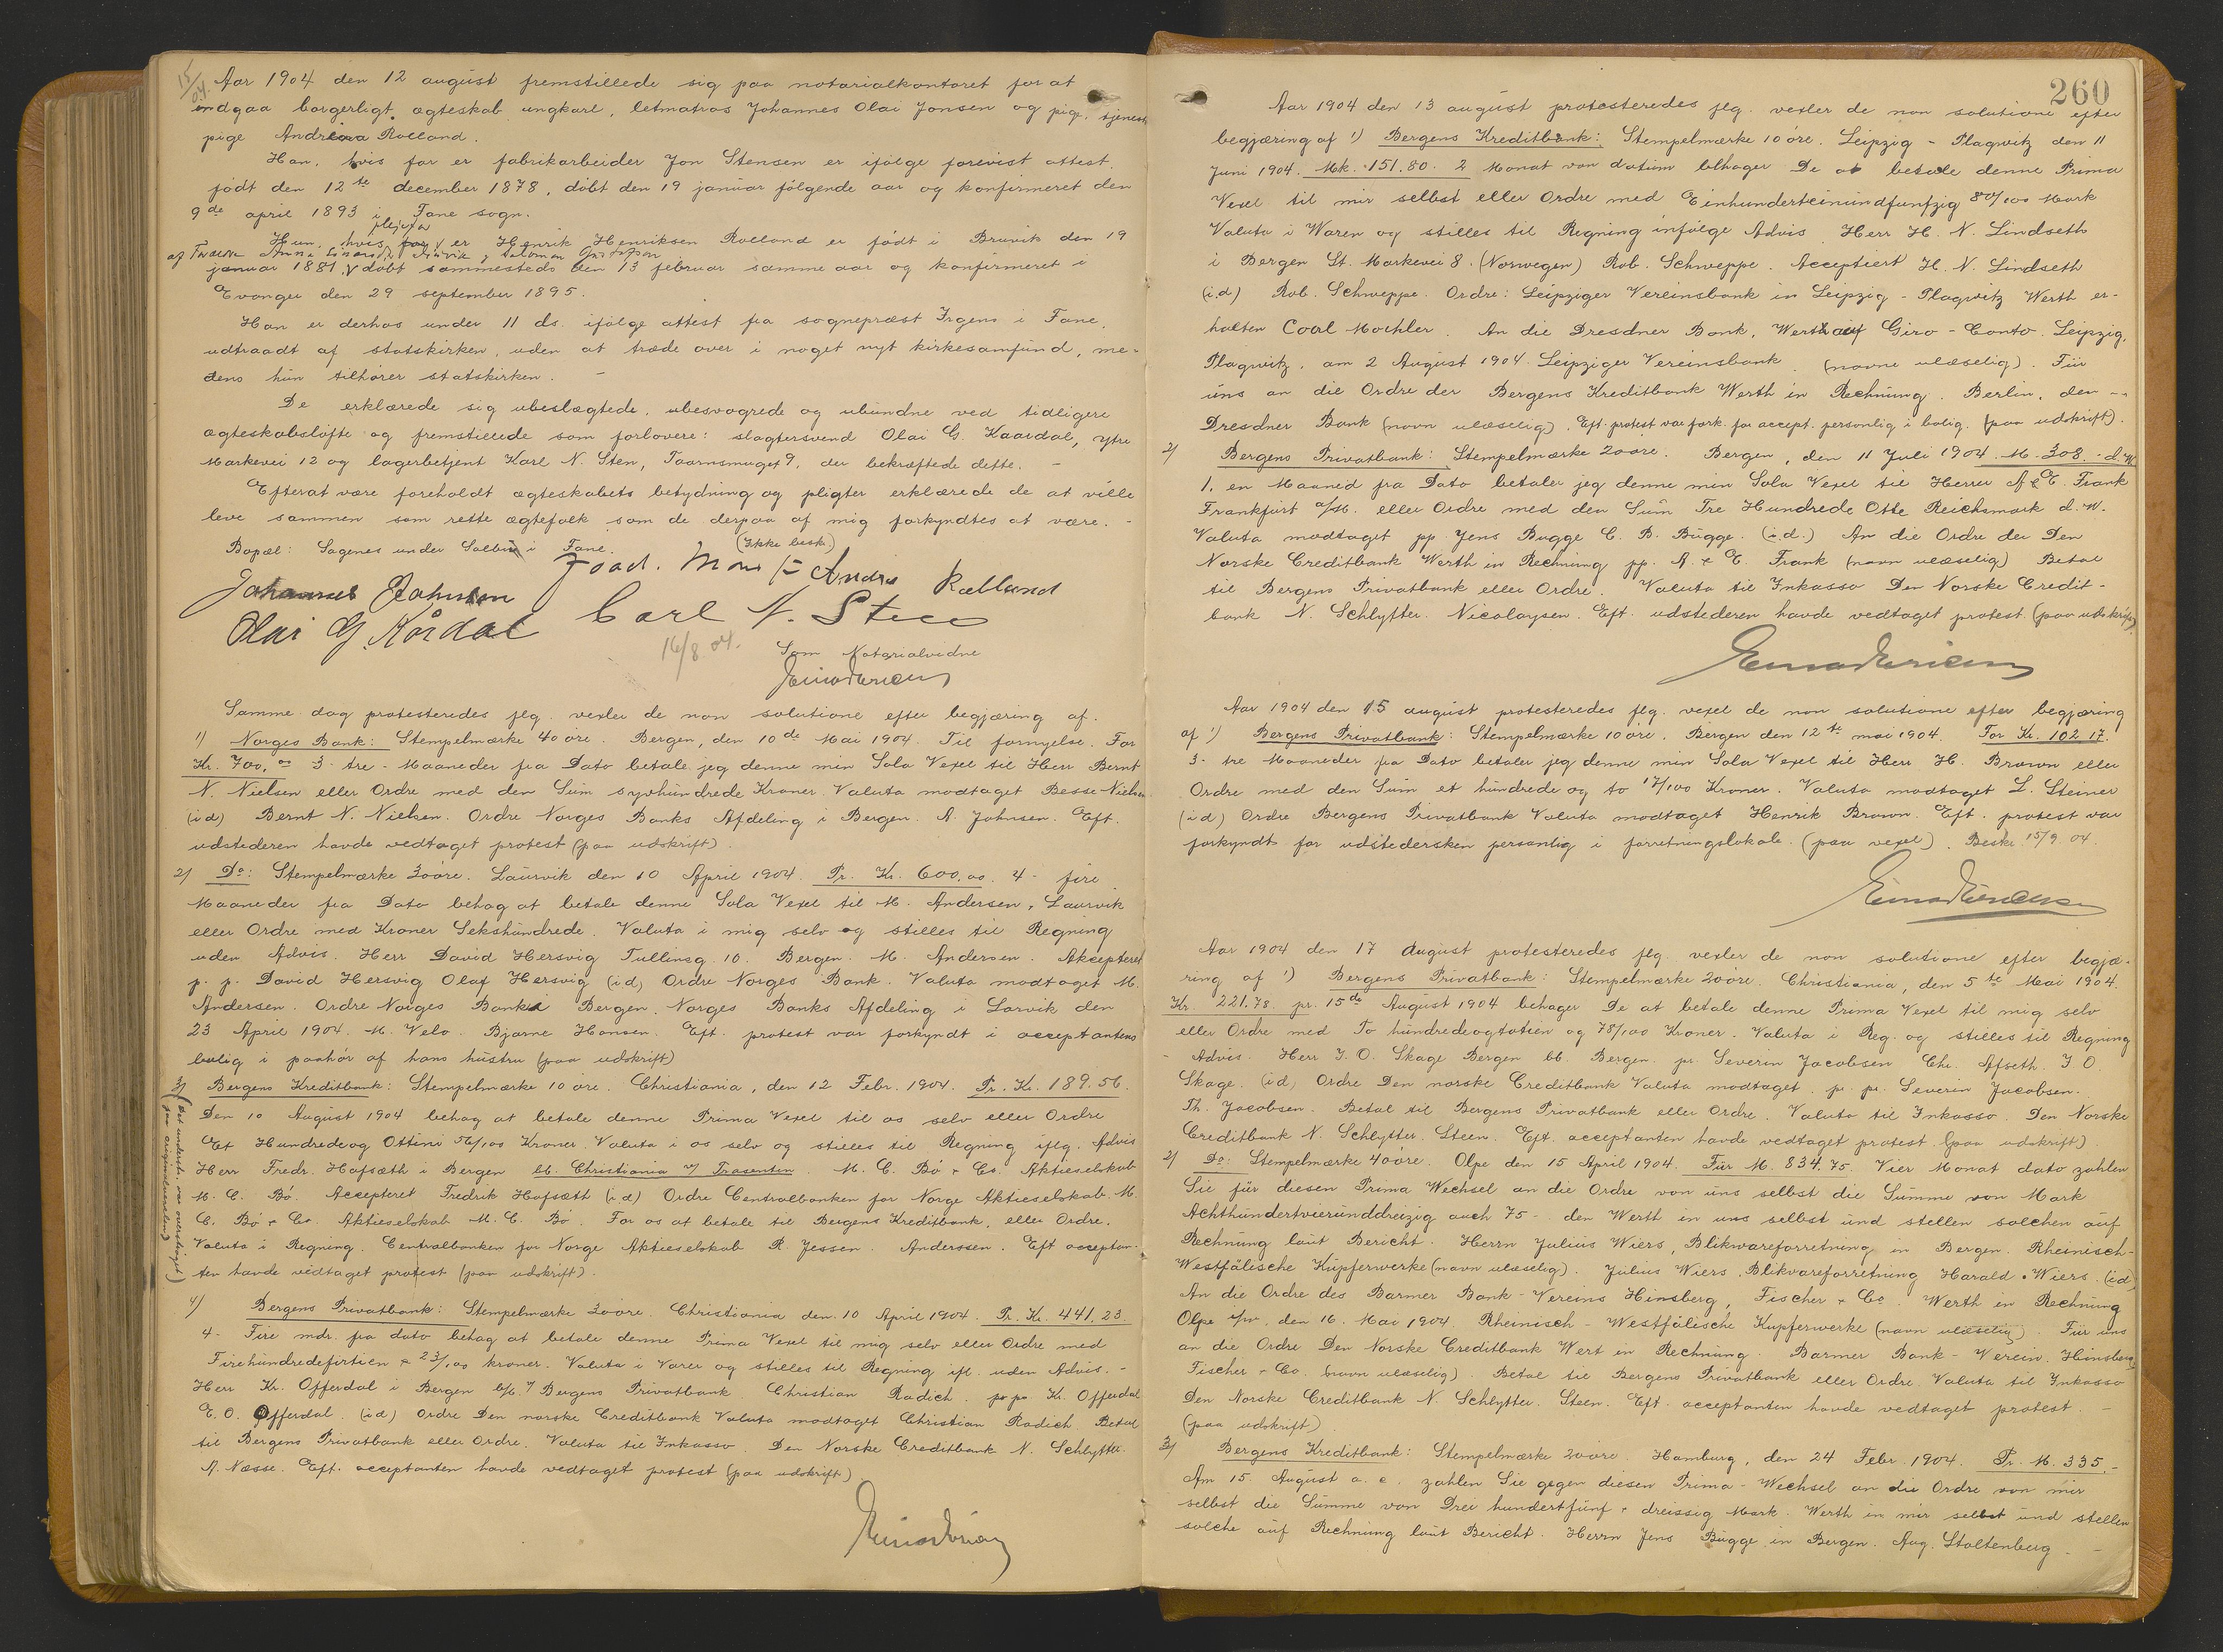 15/04.
Aar 1904 den 12 august fremstillede sig paa notarialkontoret for at
indgaa borgerligt ægteskab ungkarl, letmatros Johannes Olai Jonsen og pige, tjeneste
pige Andrea Rolland.
Han, hvis far er fabrikarbeider Jon Stensen er ifølge forevist attest,
født den 12te december 1878, døbt den 19 januar følgende aar og konfirmeret den
9de april 1893 i Fane sogn.
plejefar
Hun, hvis far er Henrik Henriksen Rolland er født i Bruvik den 19
af Forældre Anna
januar 1881 døbt sammesteds den 13 februar samme aar og konfirmeret i
Evanger den 29 september 1895.
Han er derhos under 11 ds. ifølge attest fra sogneprest Irgens i Fane,
udtraadt af statskirken, uden at træde over i noget nyt kirkesamfund, me-
dens hun tilhører statskirken. -
De erklærede sig ubeslægtede, ubesvogrede og ubundne ved tidligere
ægteskabsløfte og fremstillede som forlovere: slagtersvend Olai G. Kaardal, ytre
Markevei 12 og lagerbetjent Karl N. Sten, Taarnsmuget 9, der bekræftede dette. -
Efterat være foreholdt ægteskabets betydning og pligter erklærede de at ville
leve sammen som rette ægtefolk som de derpaa af mig forkyndtes at være. -
Bopæl: Sagenes under i Fane. (Ikke besk.)
Johannes Johnsen Andrea Rolland
Olai G. Kårdal Carl N. Steen
16/8 04. Som Notarialvidne
Samme dag protesteredes flg. vexler de non solutione efter begjæring af.
1) Norges Bank: Stempelmærke 40 øre. Bergen, den 10de Mai 1904. Til fornyelse. For
Kr. 700,00 3 tre - Maaneder fra Dato betale jeg denne min Sola Vexel til Herr Bernt
N. Nielsen eller Ordre med den Sum syvhundrede Kroner. Valuta modtaget Besse Nielsen
(id) Bernt N. Nielsen. Ordre Norges Banks Afdeling i Bergen. A. Johnsen. Eft.
udstederen havde vedtaget protest (paa udskrift).
2) Do: Stempelmærke 30 øre. Laurvik den 10 April 1904. Pr. Kr. 600,00. 4 - fire
Maaneder fra Dato behag at betale denne Sola Vexel til M. Andersen, Laurvik
eller Ordre med Kroner Sekshundrede. Valuta i mig selv og stilles til Regning
uden Advis. Herr David Hersvig Tullinsg. 10. Bergen. M. Andersen. Akcepteret
p. p. David Hersvig Olaf Hersvig (id) Ordre Norges Bank. Valuta modtaget M.
Andersen. Ordre Norges Bank i Bergen. Norges Banks Afdeling i Larvik den
23 April 1904. M. Velo. Bjarne Hansen. Eft. protest var forkyndt i acceptantens
bolig i paahør af hans hustru (paa udskrift)
3) Bergens Kreditbank: Stempelmærke 10 øre. Christiania, den 12 Febr. 1904. Pr. Kr. 189.56.
(det underst. var overstrøget paa originalvexelen)
Den 10 August 1904 behag at betale denne Prima Vexel til os selv eller Ordre
Et Hundrede og Ottini 56/100 Kroner. Valuta i os selv og stilles til Regning iflg. Advis
Herr Fredr. Hofsæth i Bergen bb. Christiania v/ Trasenten. M. C. Bö & Co. Aktieselskab
M. C. Bö. Accepteret Fredrik Hofsæth (id) Ordre Centralbanken for Norge Aktieselskab. M.
C. Bö & Co. Aktieselskab M. C. Bö. For os at betale til Bergens Kreditbank, eller Ordre.
Valuta i Regning. Centralbanken for Norge Aktieselskab R. Jessen. Anderssen. Eft acceptan-
ten havde vedtaget protest (paa udskrift).
4) Bergens Privatbank: Stempelmærke 30 øre. Christiania den 10 April 1904. Pr. Kr. 441,23.
4 - Fire mdr. fra dato behag at betale denne Prima Vexel til mig selv eller Ordre med
Firehundredefirtien & 23/100 kroner. Valuta i Varer og stilles til Regning ifl. uden Advis. -
Herr Kr. Offerdal i Bergen b/b. v/ Bergens Privatbank Christian Radich. pr pr Kr. Offerdal
E. O. Offerdal. (id) Ordre Den norske Creditbank Valuta modtaget Christian Radich Betal
til Bergens Privatbank eller Ordre. Valuta til Inkasso. Den Norske Creditbank N. Schlytter.
A. Næsse. Eft. acceptanten havde vedtaget protest (paa udskrift)
260
Aar 1904 den 13 august protesteredes flg. vexler de non solutione efter
begjæring af 1) Bergens Kreditbank: Stempelmærke 10 øre. Leipzig - Plagwitz den 11
Juni 1904. Mk. 151.80. 2 Monat von datum behager De at betale denne Prima
Vexel til mir selbst eller Ordre med Einhunderteinundfunfzig 80/100 Mark
Valuta i Waren og stilles til Regning infølge Advis Herr H. N. Lindseth
i Bergen St. Markevei 8. (Norwegen) Rob. Schweppe. Acceptiert H. N. Lindseth
(id) Rob. Schweppe. Ordre: Leipziger Vereinsbank in Leipzig - Plagwitz Werth er-
halten Carl Moehler. An die Dresdner Bank, Werth auf Giro - Conto. Leipzig,
Plagwitz, am 2 August 1904. Leipziger Vereinsbank. (navne ulæselig). Für
uns an die Ordre der Bergens Kreditbank Werth in Rechnung. Berlin, den --
Dresdner Bank (navn ulæselig). Eft. protest var fork. for accept. personlig i bolig. (paa udskrift).
2) Bergens Privatbank: Stempelmærke 20 øre. Bergen, den 11 Juli 1904. M. 308. - d. W.
1, en Maaned fra Dato betaler jeg denne min Sola Vexel til Herrer A & E. Frank
Frankfurt a/M. eller Ordre med den Sum Tre Hundrede Otte Reichsmark d. W.
Valuta modtaget pp. Jens Bugge C. B. Bugge. (i.d.) An die Ordre der Den
Norske Creditbank Werth in Rechnung pp. A. & E. Frank (navn ulæselig) Betal
til Bergens Privatbank eller Ordre. Valuta til Inkasso Den Norske Credit-
bank N. Schlytter. Nicolaysen. Eft. udstederen havde vedtaget protest. (paa udskrift).
Aar 1904 den 15 august protesteredes flg. vexel de non solutione efter begjæring
af 1) Bergens Privatbank: Stempelmærke 10 øre. Bergen den 12te mai 1904. For Kr. 102.17.
3 - tre Maaneder fra Dato betaler jeg denne min Sola Vexel til Herr H. Brown eller
Ordre med den Sum et hundrede og to 17/100 Kroner. Valuta modtaget L. Steiner
(id) Ordre Bergens Privatbank Valuta modtaget Henrik Brown. Eft. protest var
forkyndt for udstedersken personlig i forretningslokale. (paa vexel). Besk. 15/9 04.
Aar 1904 den 17 August protesteredes flg. vexler de non solutione efter begjæ-
ring af 1) Bergens Privatbank: Stempelmærke 20 øre. Christiania, den 5te Mai 1904.
Kr. 221.78. pr. 15de August 1904 behager De at betale denne Prima Vexel til mig selv
eller Ordre med To hundredeogtotien og 78/100 Kroner. Valuta i Reg. og stilles til Regning
- Advis. Herr J. O. Skage Bergen bb. Bergen. pr. Severin Jacobsen Chr. Afseth. J. O.
Skage. (id) Ordre Den norske Creditbank Valuta modtaget. pr. pr. Severin Jacobsen.
Th. Jacobsen. Betal til Bergens Privatbank eller Ordre. Valuta til Inkasso. Den Norske
Creditbank N. Schlytter. Steen. Eft. acceptanten havde vedtaget protest. (paa udskrift).
2) Do: Stempelmærke 40 øre. Olpe den 15 April 1904. Für M. 834,75. Vier Monat dato zahlen
Sie für diesen Prima Wechsel an die Ordre von uns selbst die Summe von Mark
Achthundertvierunddreizig auch 75 - den Werth in uns selbst und stellen solchen auf
Rechnung laut Bericht. Herrn Julius Wiers, Blikvareforretning in Bergen. Rheinisch-
Westfälische Kupferwerke (navn ulæselig). Julius Wiers. Blikvareforretning Harald Wiers. (id)
An die Ordre des Barmer Bank - Vereins Hinsberg, Fischer & Co. Werth in Rechnung
Olpe i/W. den 16. Mai 1904. Rheinisch - Westfälische Kupferwerke (navn ulæselig). Für uns
an die Ordre Den Norske Creditbank Wert in Rechnung. Barmer Bank - Verein. Hinsberg,
Fischer & Co. (navn ulæselig). Betal til Bergens Privatbank eller Ordre. Valuta til Inkasso
Den Norske Creditbank N. Schlytter. Steen. Eft. acceptanten havde vedtaget protest. -
(paa udskrift)
3) Bergens Kreditbank: Stempelmærke 20 øre. Hamburg, den 24 Febr. 1904. Pr. M. 335.-
Am 15. August a. c. zahlen Sie gegen diesen Prima - Wechsel an die Ordre von mir
selbst die Summe von Drei hundertfünf & dreissig Mark. Werth in mir selbst und stellen
solche auf Rechnung laut Bericht. Herrn Jens Bugge in Bergen. Aug. Stoltenberg. -